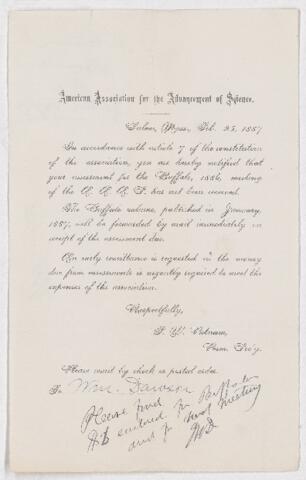 American Association for the Advancement of Science.
Salem, Mass., Feb. 25, 1887
In accordance with article 7 of the constitution
of the association, you are hereby notified that
your assessment for the Buffalo, 1886, meeting
of the A. A. A. S. has not been received.
The Buffalo volume, published in January,
1887, will be forwarded by mail immediately on
receipt of the assessment due.
An early remittance is requested as the money
due from assessments is urgently required to meet the
expenses of the association.
Respectfully,
F. W. Putnam,
Perm. Sec'y.
Please remit by check or postal order.
To Wm. Dawson
Please find
enclosed for Buffalo
and for next meeting